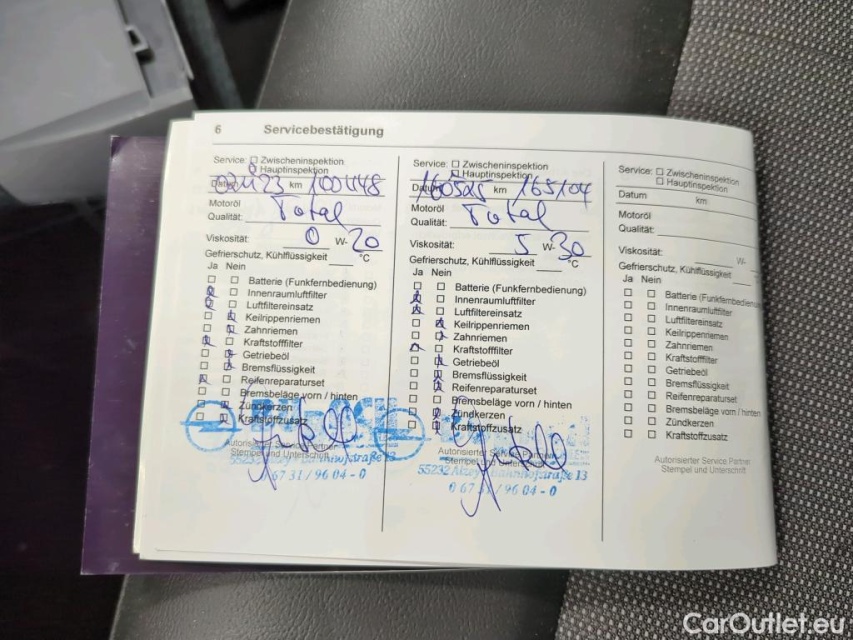 6 Servicebestätigung
Service: Zwischeninspektion
Hauptinspektion
Datum km 100448
Motoröl Total
Qualität:
Viskosität: 0 W- 20
Gefrierschutz, Kühlflüssigkeit °C
Ja Nein
Batterie (Funkfernbedienung)
Innenraumluftfilter
Luftfiltereinsatz
Keilrippenriemen
Zahnriemen
Kraftstofffilter
Getriebeöl
Bremsflüssigkeit
Reifenreparaturset
Bremsbeläge vorn / hinten
Zündkerzen
Kraftstoffzusatz
Autorisierter Service Partner
Stempel und Unterschrift
55232 Alzey Bahnhofstraße 13
0 67 31 / 96 04 - 0
Service: Zwischeninspektion
Hauptinspektion
Datum 160525 km 165104
Motoröl Total
Qualität:
Viskosität: 5 W- 30
Gefrierschutz, Kühlflüssigkeit °C
Ja Nein
Batterie (Funkfernbedienung)
Innenraumluftfilter
Luftfiltereinsatz
Keilrippenriemen
Zahnriemen
Kraftstofffilter
Getriebeöl
Bremsflüssigkeit
Reifenreparaturset
Bremsbeläge vorn / hinten
Zündkerzen
Kraftstoffzusatz
Autorisierter Service Partner
Stempel und Unterschrift
55232 Alzey Bahnhofstraße 13
0 67 31 / 96 04 - 0
Service: Zwischeninspektion
Hauptinspektion
Datum km
Motoröl
Qualität:
Viskosität: W-
Gefrierschutz, Kühlflüssigkeit
Ja Nein
Batterie (Funkfernbedienun
Innenraumluftfilter
Luftfiltereinsatz
Keilrippenriemen
Zahnriemen
Kraftstofffilter
Getriebeöl
Bremsflüssigkeit
Reifenreparaturset
Bremsbeläge vorn / hinten
Zündkerzen
Kraftstoffzusatz
Autorisierter Service Partner
Stempel und Unterschrift
CarOutlet.eu